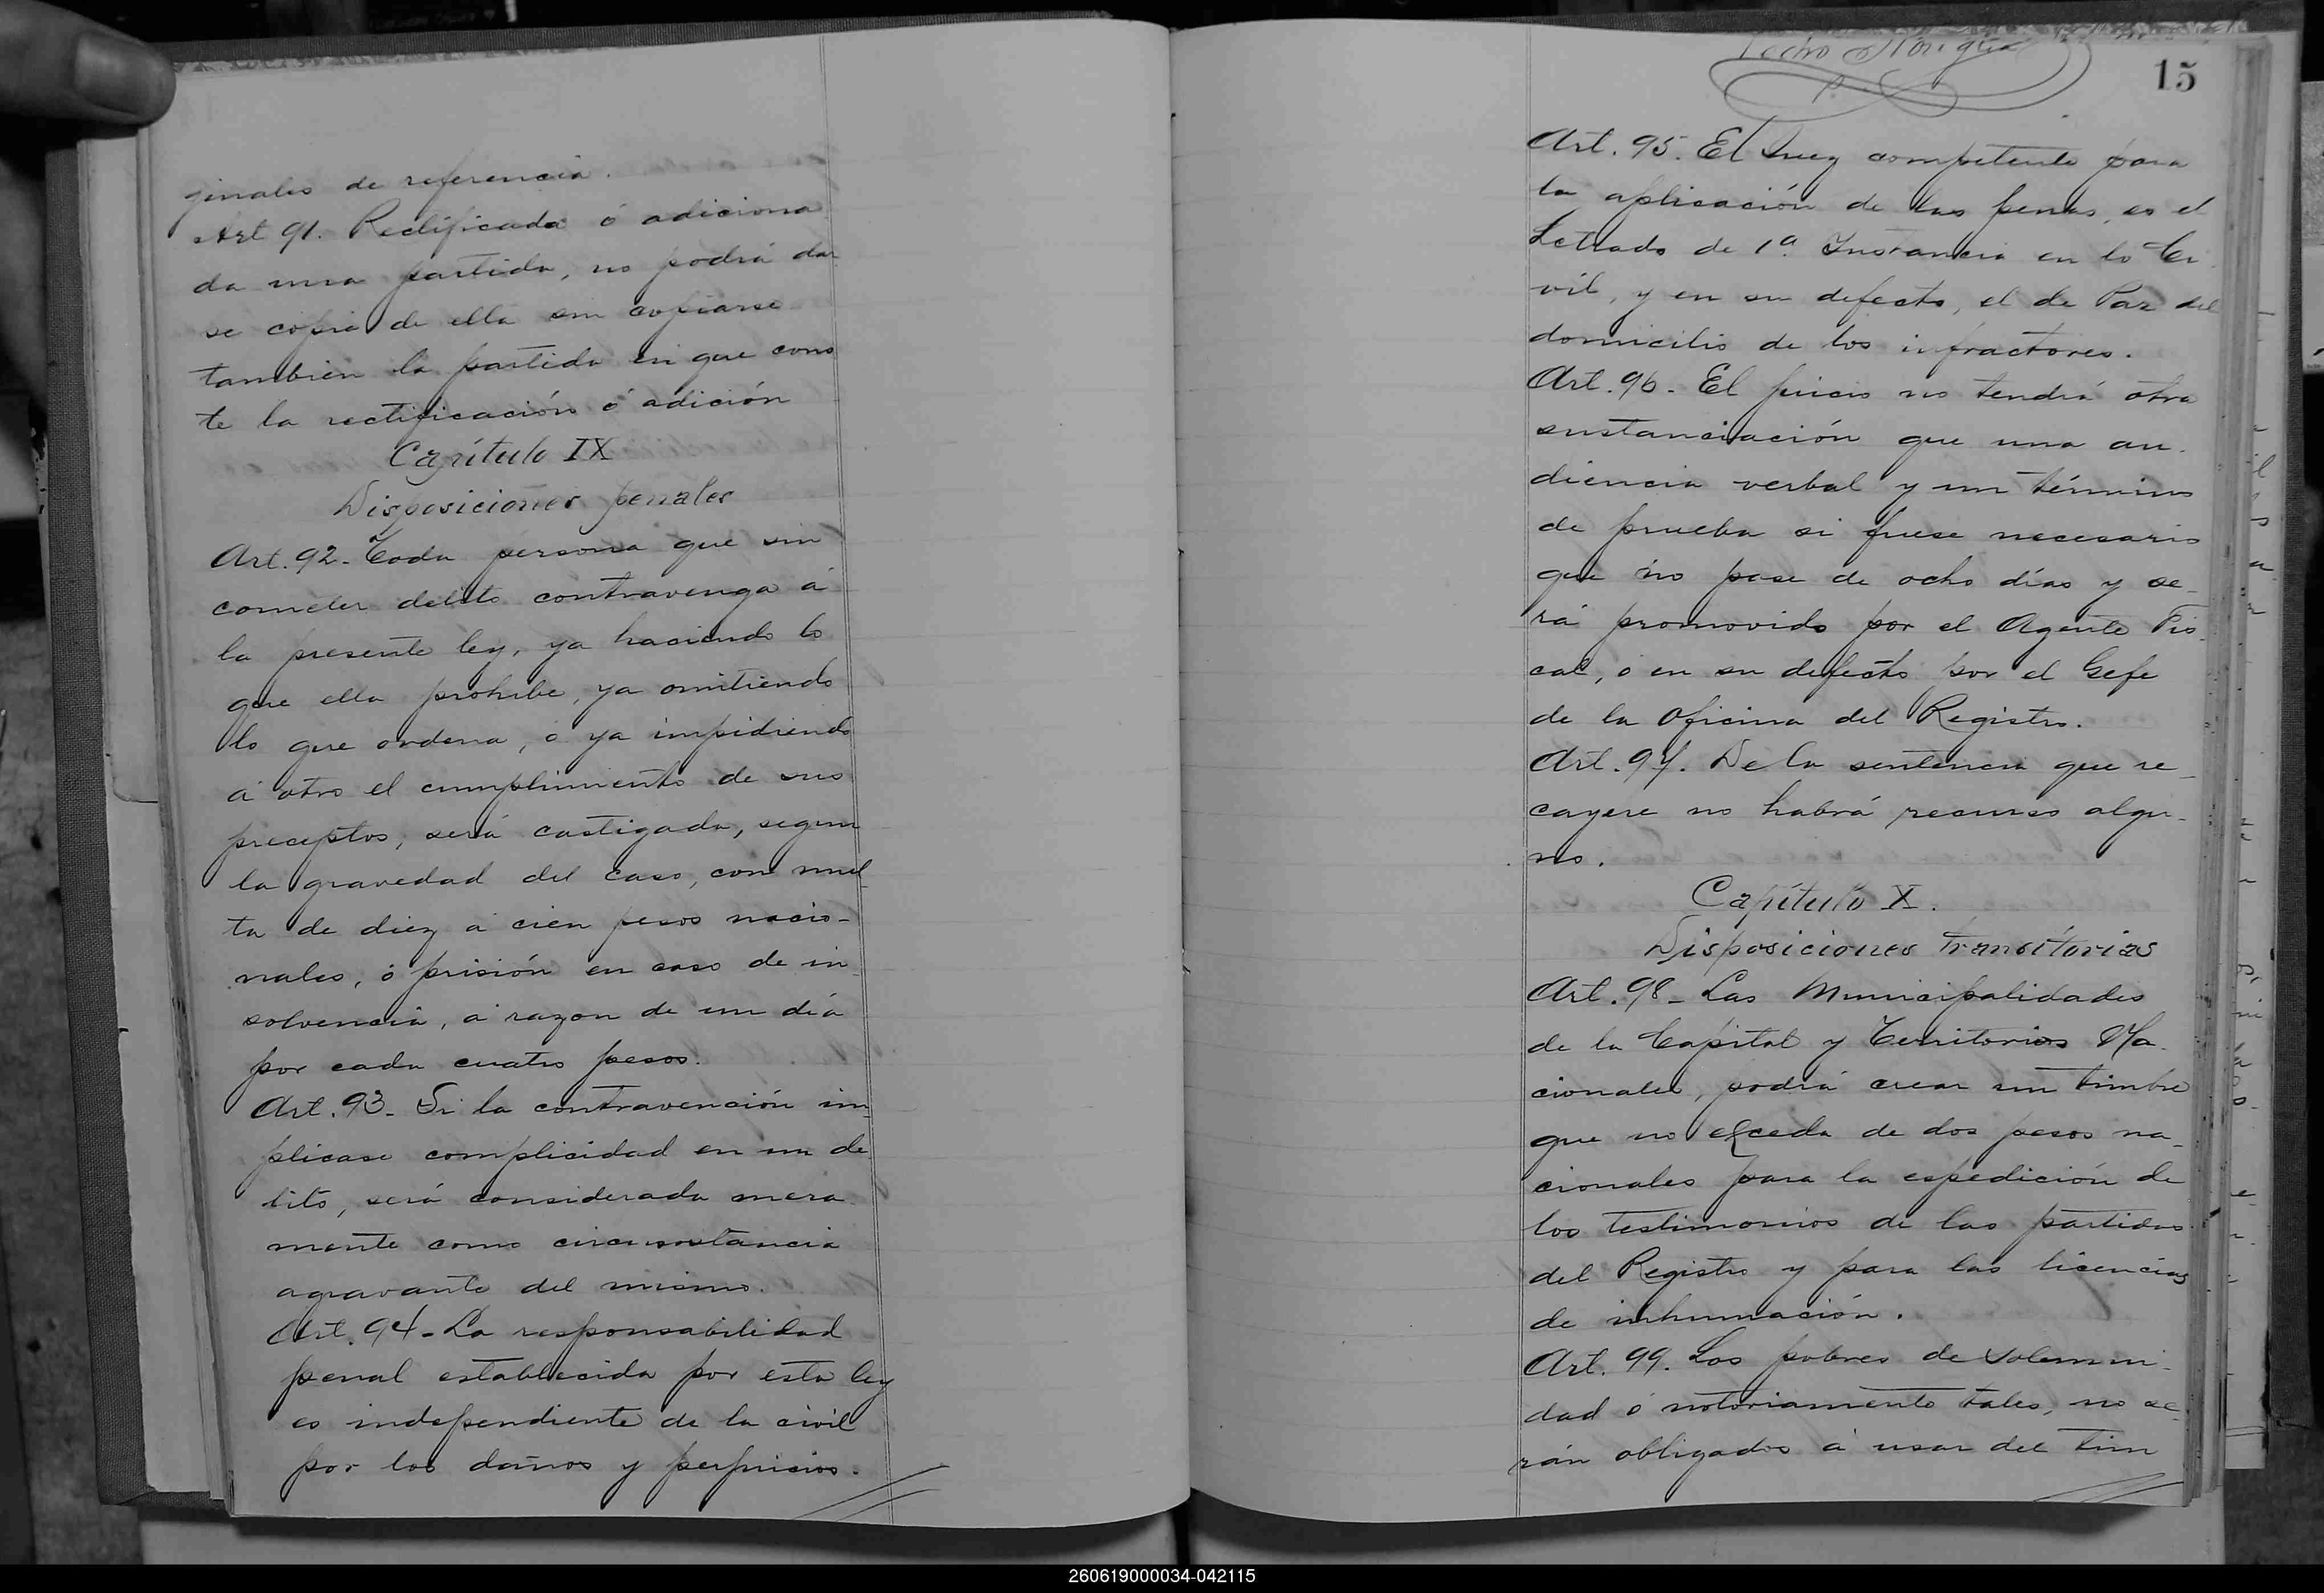 ginales de referencia.
Art 91. Rectificada ó adiciona
da una partida, no podrá dar
se copia de ella sin copiarse
tambien la partida en que cons
te la rectificación ó adición
Capítulo IX
Disposiciones penales
Art. 92- Toda persona que sin
cometer delito contravenga á
la presente ley, ya haciendo lo
que ella prohibe, ya omitiendo
lo que ordena, ó ya impidiendo
á otro el cumplimiento de sus
preceptos, será castigada, segun
la gravedad del caso, con mul
ta de diez á cien pesos nacio-
nales, ó prisión en caso de in
solvencia, á razon de un día
por cada cuatro pesos.
Art. 93- Si la contravención im
plicase complicidad en un de
lito, será considerada mera
mente como circunstancia
agravante del mismo.
Art. 94- La responsabilidad
penal establecida por esta ley
es independiente de la civil
por los daños y perjuicios.
15
Art. 95. El Juez competente para
la aplicación de las penas, es el
Letrado de 1ª Instancia en lo Ci
vil, y en su defecto, el de Paz del
domicilio de los infractores.
Art. 96- El juicio no tendrá otra
sustanciación que una au-
diencia verbal y un término
de prueba si fuese necesario
que no pase de ocho días y se-
rá promovido por el Agente Fis-
cal, ó en su defecto por el Gefe
de la Oficina del Registro.
Art. 97. De la sentencia que re-
cayere no habrá recurso algu-
no.
Capítulo X.
Disposiciones transitorias
Art. 98- Las Municipalidades
de la Capital y Territorios Na-
cionales, podrá crear un timbre
que no exceda de dos pesos na-
cionales para la espedición de
los testimonios de las partidas
del Registro y para las licencias
de inhumación.
Art. 99. Los pobres de solemni-
dad ó notoriamente tales, no se-
rán obligados á usar del tim
260619000034-042115